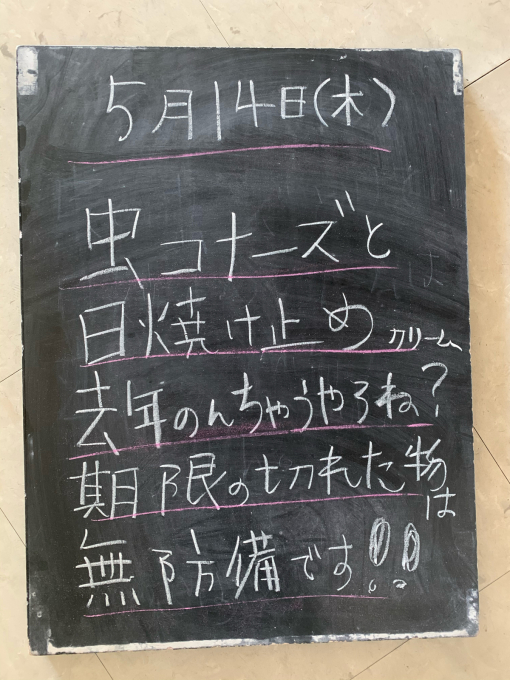 5月14日(木)
虫コナーズと
日焼け止めクリーム
去年のんちゃうやろね?
期限の切れた物は
無防備です!!